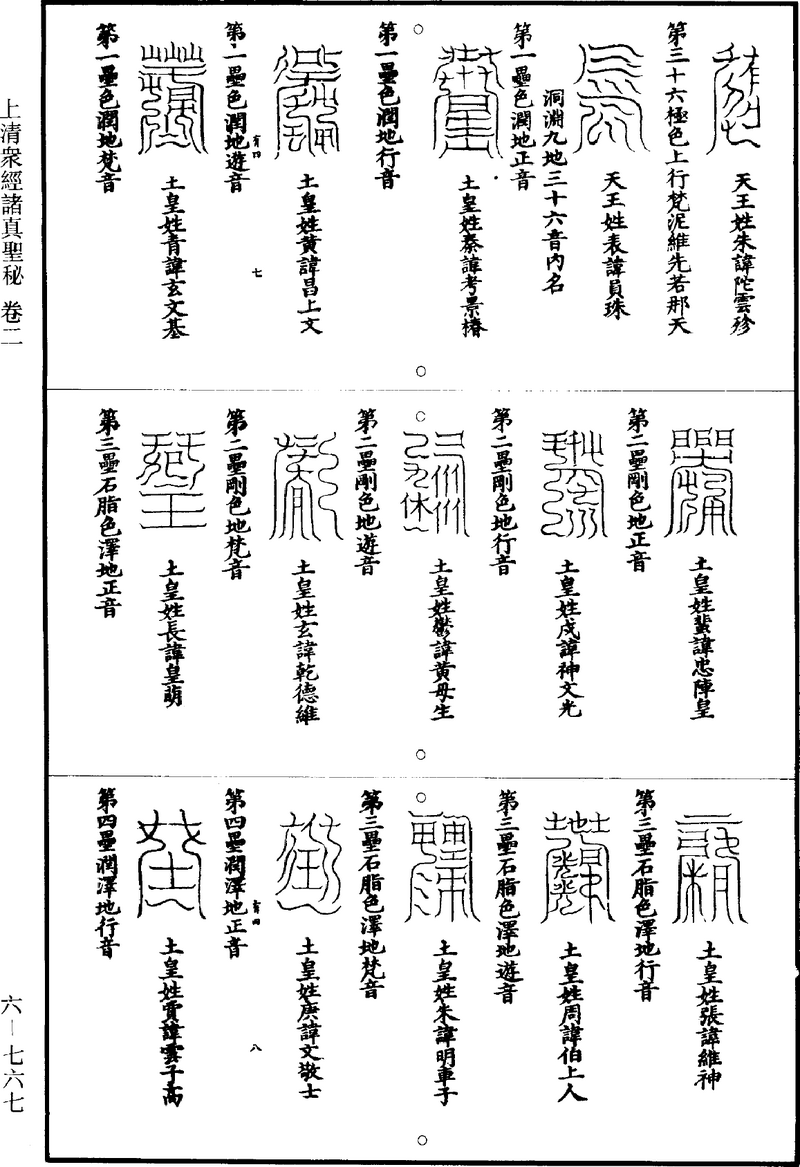 天王姓朱諱陀雲珍
第三十六極色上行梵泥維先若那天
天王姓表諱員珠
洞淵九地三十六音內名
第一壘色潤地正音
土皇姓秦諱考景椿
第一壘色潤地行音
土皇姓黃諱昌上文
第一壘色潤地遊音
土皇姓青諱玄文基
第一壘色潤地梵音
土皇姓蜚諱忠陣皇
第二壘剛色地正音
土皇姓戍諱神文光
第二壘剛色地行音
土皇姓鬱諱黃母生
第二壘剛色地遊音
土皇姓玄諱乾德維
第二壘剛色地梵音
土皇姓長諱皇萌
第三壘石脂色澤地正音
土皇姓張諱維神
第三壘石脂色澤地行音
土皇姓周諱伯上人
第三壘石脂色澤地遊音
土皇姓朱諱明車子
第三壘石脂色澤地梵音
土皇姓庚諱文敬士
第四壘潤澤地正音
土皇姓賈諱雲子高
第四壘潤澤地行音
七
八
上清衆經諸真聖秘 卷二
六—七六七